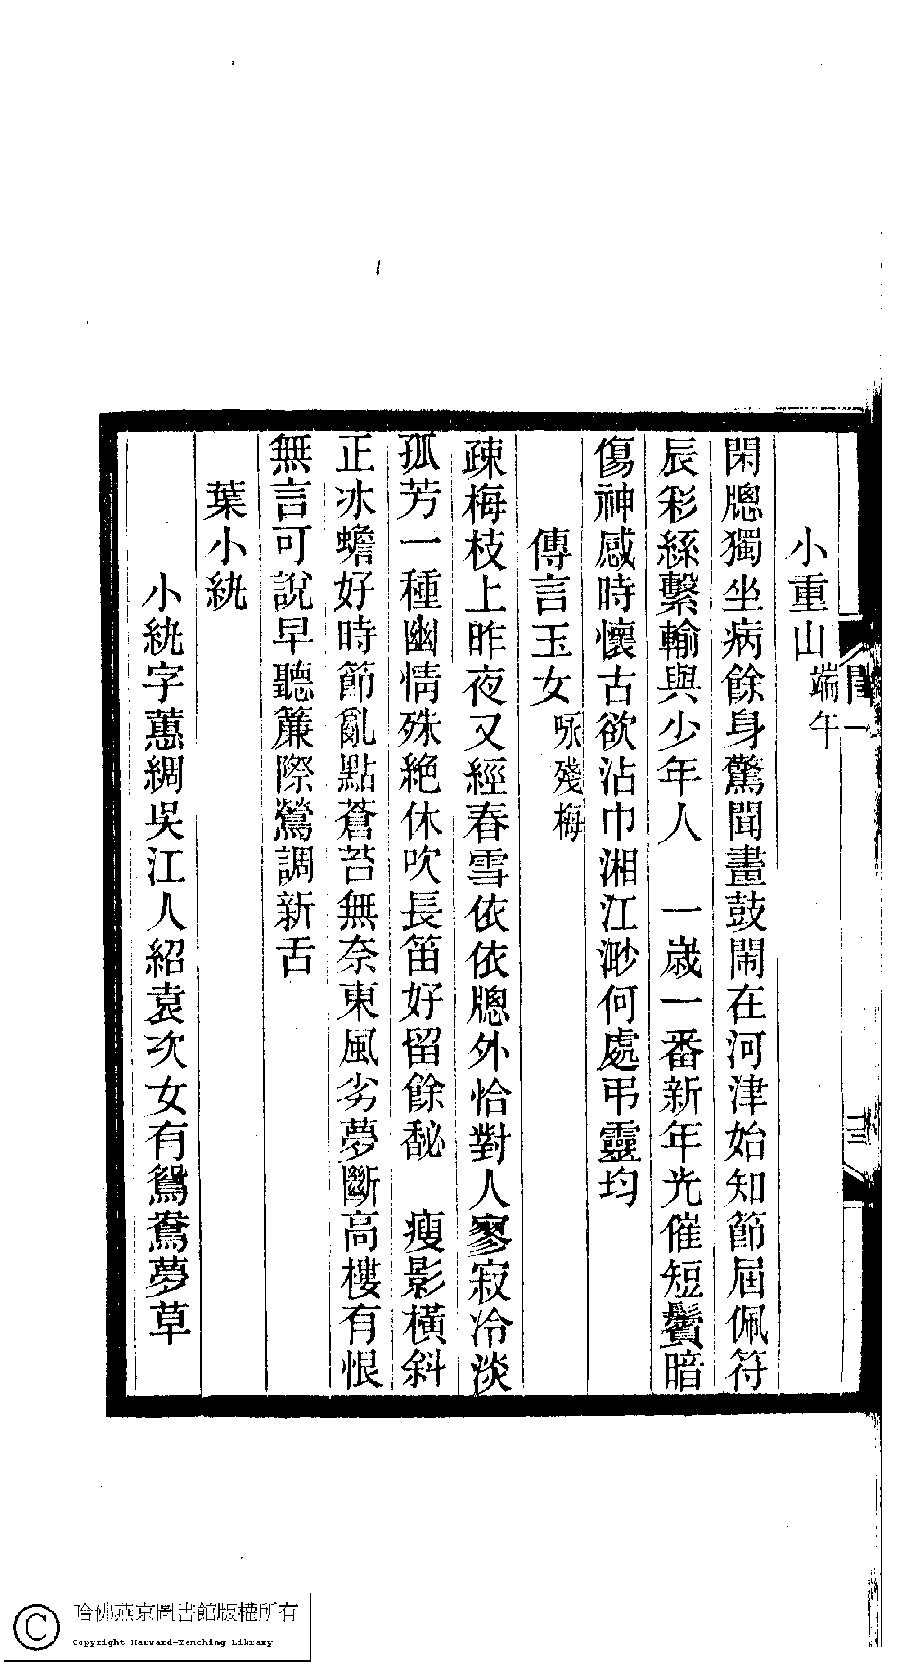 小重山端午
閑牕獨坐病餘身驚聞畫鼓閙在河津始知節屆佩符
辰彩絲繫輸與少年人　一歲一番新年光催短鬢暗
傷神感時懷古欲沾巾湘江渺何處弔靈均
傳言玉女咏殘梅
疎梅枝上昨夜又經春雪依依牕外恰對人寥寂冷淡
孤芳一種幽情殊絶休吹長笛好留餘馝　瘦影橫斜
正冰蟾好時節亂點蒼苔無奈東風劣夢斷高樓有恨
無言可說早聽簾際鶯調新舌
葉小紈
小紈字蕙綢吳江人紹袁次女有鴛鴦夢草
哈佛燕京圖書館版權所有
Copyright Harvard-Yenching Library